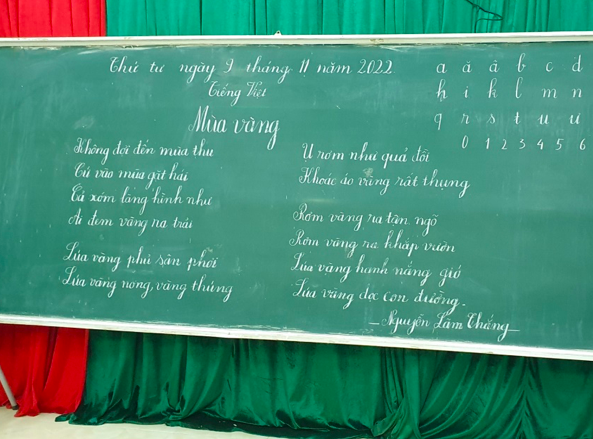 Thứ tư ngày 9 tháng 11 năm 2022
Tiếng Việt
Mùa vàng
Không đợi đến mùa thu
Cứ vào mùa gặt hái
Cả xóm làng hình như
Ai đem vàng ra trải
Lúa vàng phủ sân phơi
Lúa vàng nong, vàng thúng
Ụ rơm như quả đồi
Khoác áo vàng rất thụng
Rơm vàng ra tận ngõ
Rơm vàng ra khắp vườn
Lúa vàng hanh nắng gió
Lúa vàng dọc con đường.
– Nguyễn Lãm Thắng –
a ă â b c d
h i k l m n
q r s t u ư
0 1 2 3 4 5 6